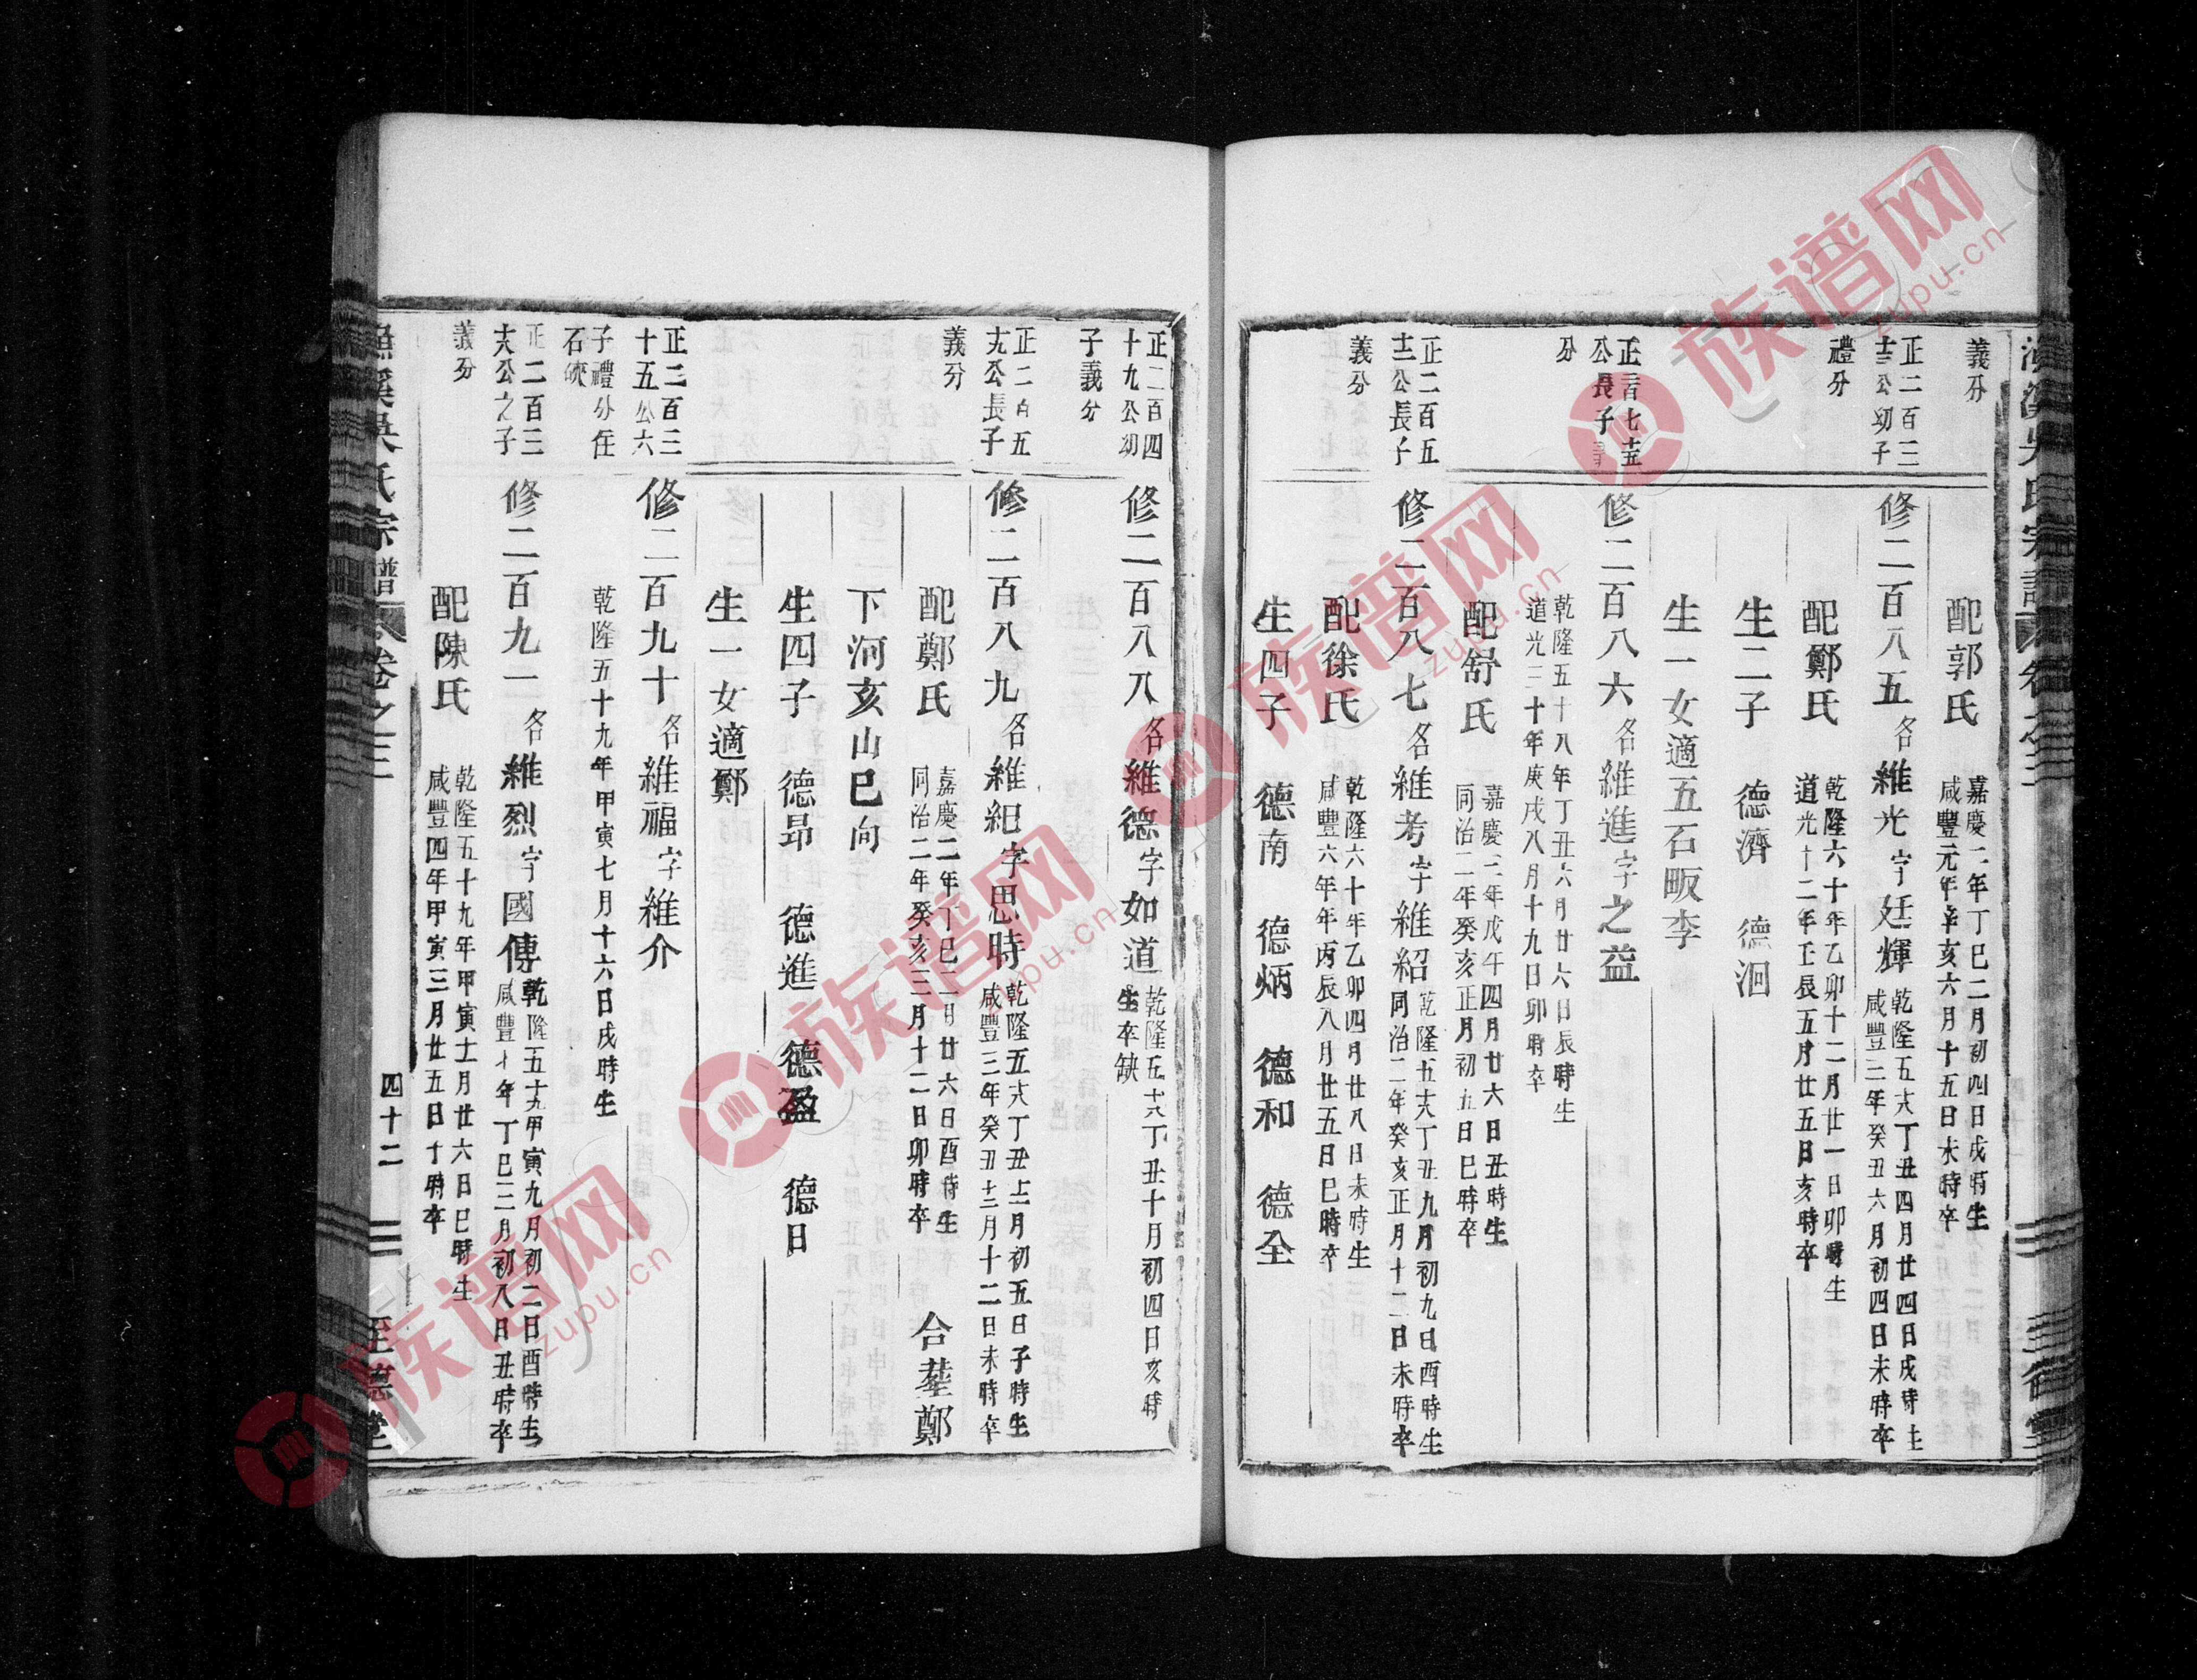 義分
配郭氏 嘉慶二年丁巳二月初四日戌時生
咸豐元年辛亥六月十五日未時卒
正二百三
十三公幼子
禮分
修二百八五名維光字廷輝 乾隆五十六丁丑四月廿四日戌時生
咸豐三年癸丑六月初四日未時卒
配鄭氏 乾隆六十年乙卯十二月廿一日卯時生
道光十二年壬辰五月廿五日亥時卒
生二子 德濟 德洄
生一女適五石畈李
公長子
分
修二百八六名維進字之益
乾隆五十八年丁丑六月廿六日辰時生
道光三十年庚戌八月十九日卯時卒
配舒氏 嘉慶三年戊午四月廿六日丑時生
同治二年癸亥正月初五日巳時卒
正二百五
十二公長子
義分
修二百八七名維考字維紹 乾隆五十六丁丑九月初九日酉時生
同治二年癸亥正月十二日未時卒
配徐氏 乾隆六十年乙卯四月廿八日未時生
咸豐六年年丙辰八月廿五日巳時卒
生四子 德南 德炳 德和 德全
正二百四
十九公幼
子義分
修二百八八名維德字如道 乾隆五十六丁丑十月初四日亥時
生卒缺
正二百五
十九公長子
義分
修二百八九名維紀字思時 乾隆五十六丁丑十一月初五日子時生
咸豐三年癸丑十二月十二日未時卒
配鄭氏 嘉慶二年丁巳二月廿六日酉時生
同治二年癸亥三月十二日卯時卒 合塟鄭
下河亥山巳向
生四子 德昂 德進 德盈 德日
生一女適鄭
正二百三
十五公六
子禮分住
石硤
修二百九十名維福字維介
乾隆五十九年甲寅七月十六日戌時生
正二百三
十六公之子
義分
修二百九一名維烈字國傳 乾隆五十九甲寅九月初二日酉時生
咸豐七年丁巳二月初八日丑時卒
配陳氏 乾隆五十九年甲寅十一月廿六日巳時生
咸豐四年甲寅三月廿五日午時卒
漁溪吳氏宗譜 卷之三 四十二 至德堂
族谱网
zupu.cn
族谱网
zupu.cn
族谱网
zupu.cn
族谱网
zupu.cn